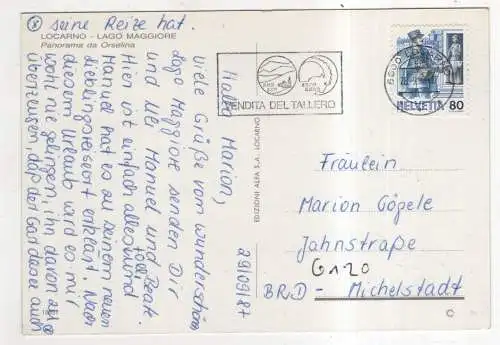 LOCARNO - LAGO MAGGIORE
Panorama da Orselina
Hallo Marion,
viele Grüße vom wunderschönen
Lago Maggiore senden Dir
und Uli Manuel und Beate.
Hier ist einfach alles
toll und
Manuel hat es zu seinem neuen
Lieblingsreiseort erklärt. Nach
diesem Urlaub wird es mir
wohl nie gelingen, ihn davon zu
überzeugen, daß der Gardasee auch
⊗ seine Reize hat.
29/09/87
EDIZIONI ALFA S.A. LOCARNO
VENDITA DEL TALLERO
HELVETIA 80
Fräulein
Marion Göpele
Jahnstraße
6120
BRD - Michelstadt
C